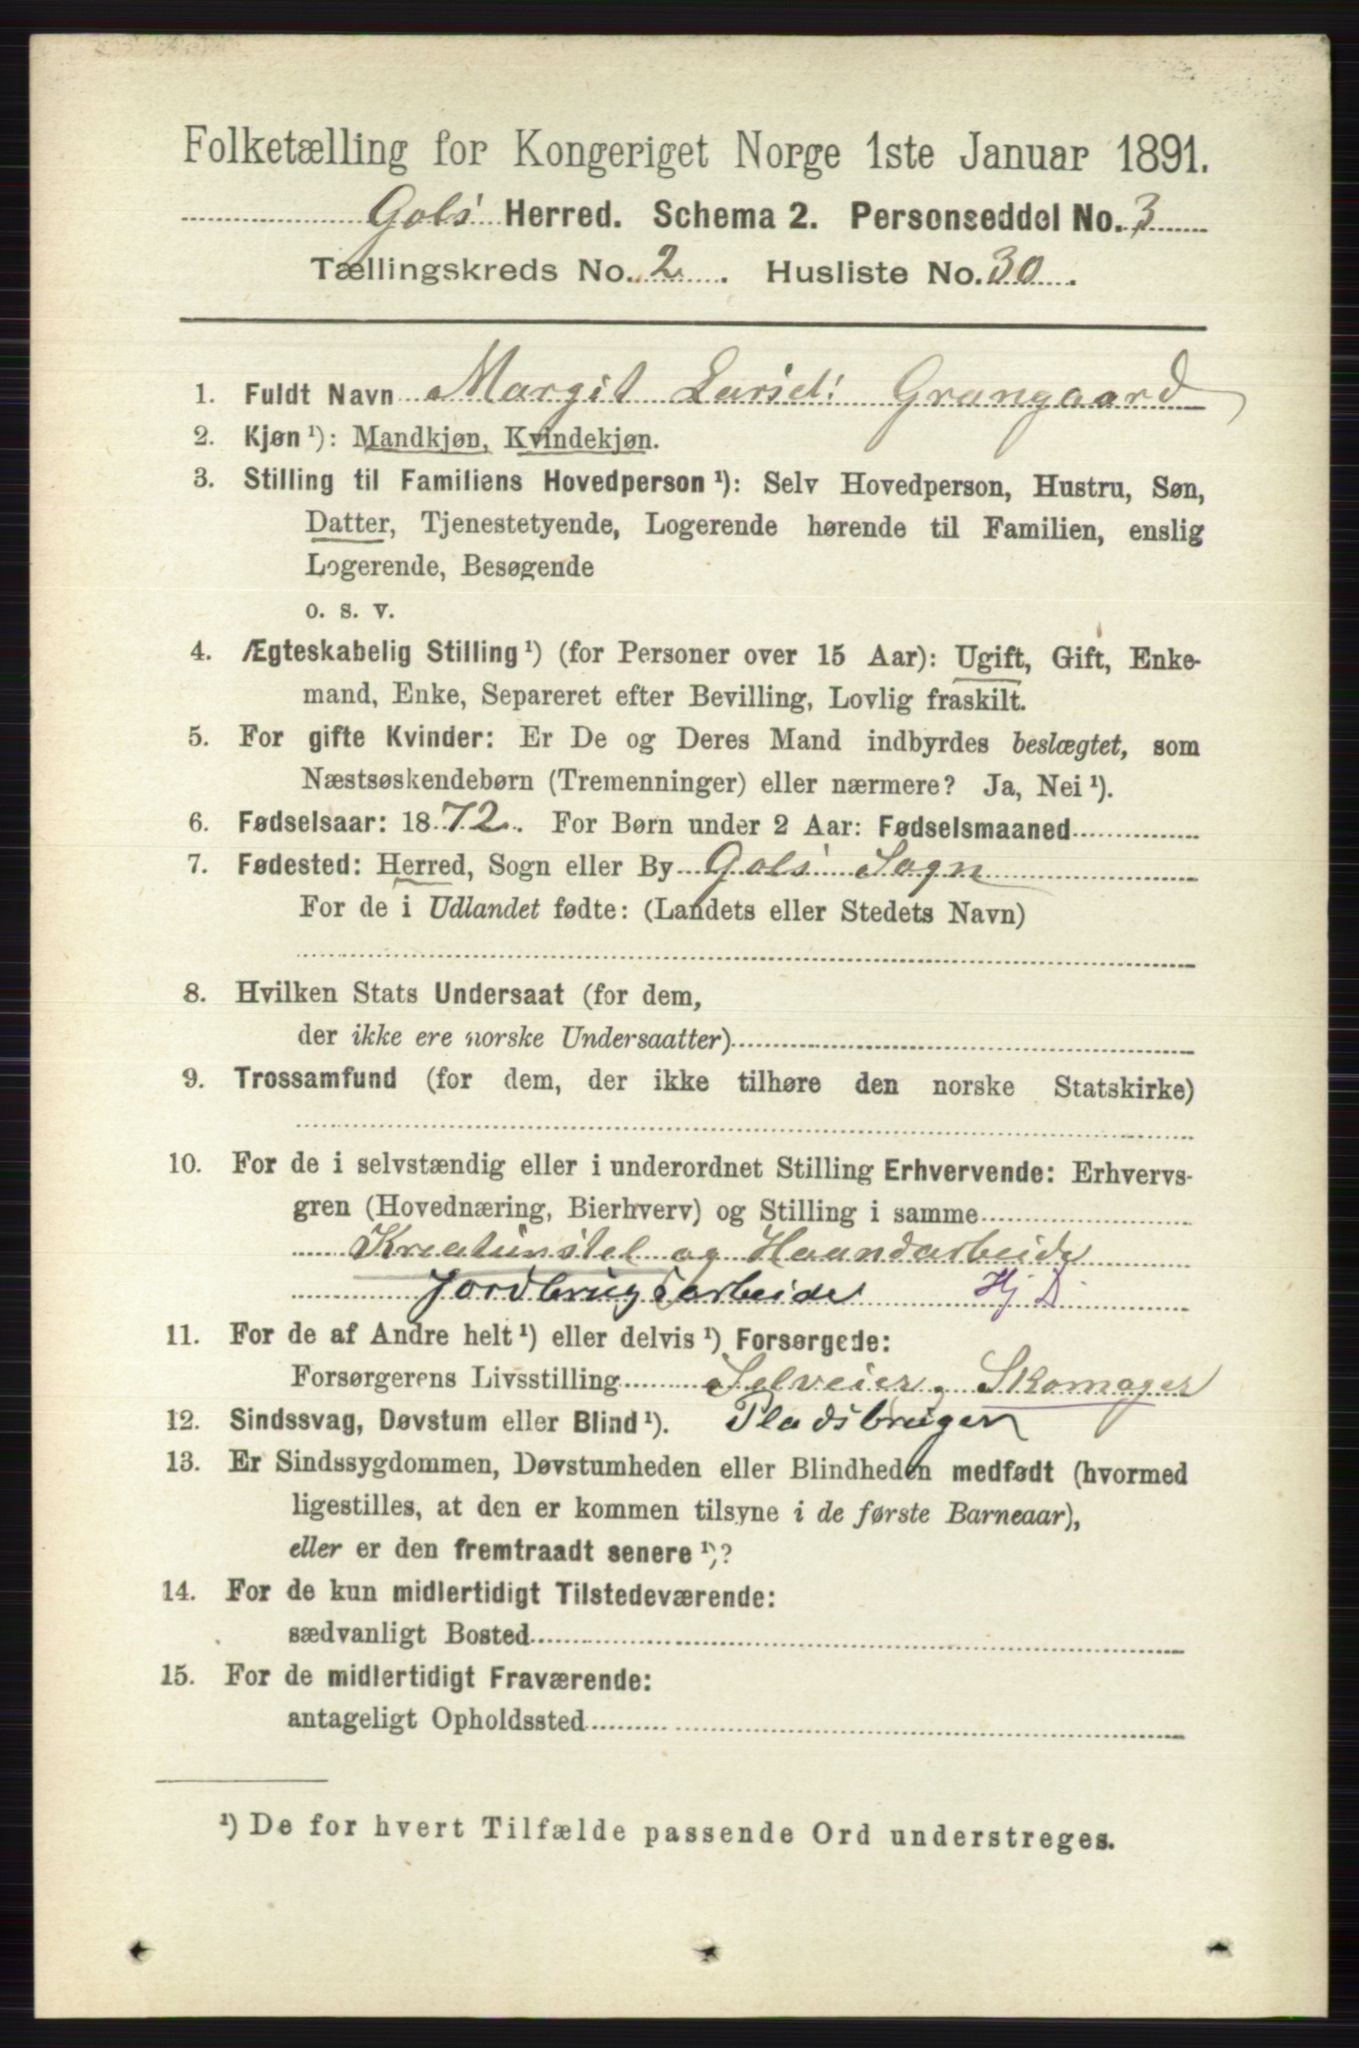 Folketælling for Kongeriget Norge 1ste Januar 1891.
Gols Herred. Schema 2. Personseddel No. 3
Tællingskreds No. 2. Husliste No. 30.
1. Fuldt Navn Margit Larsd: Grangaard
2. Kjøn ¹): Mandkjøn, Kvindekjøn.
3. Stilling til Familiens Hovedperson ¹): Selv Hovedperson, Hustru, Søn,
Datter, Tjenestetyende, Logerende hørende til Familien, enslig
Logerende, Besøgende
o. s. v.
4. Ægteskabelig Stilling ¹) (for Personer over 15 Aar): Ugift, Gift, Enke-
mand, Enke, Separeret efter Bevilling, Lovlig fraskilt.
5. For gifte Kvinder: Er De og Deres Mand indbyrdes beslægtet, som
Næstsøskendebørn (Tremenninger) eller nærmere? Ja, Nei ¹).
6. Fødselsaar: 1872. For Børn under 2 Aar: Fødselsmaaned
7. Fødested: Herred, Sogn eller By Gols Sogn
For de i Udlandet fødte: (Landets eller Stedets Navn)
8. Hvilken Stats Undersaat (for dem,
der ikke ere norske Undersaatter)
9. Trossamfund (for dem, der ikke tilhøre den norske Statskirke)
10. For de i selvstændig eller i underordnet Stilling Erhvervende: Erhvervs-
gren (Hovednæring, Bierhverv) og Stilling i samme
Kreaturstel og Haandarbeide
Jordbrugsarbeide Hj D
11. For de af Andre helt ¹) eller delvis ¹) Forsørgede:
Forsørgerens Livsstilling Selveier, Skomager
12. Sindssvag, Døvstum eller Blind ¹). Pladsbruger
13. Er Sindssygdommen, Døvstumheden eller Blindheden medfødt (hvormed
ligestilles, at den er kommen tilsyne i de første Barneaar),
eller er den fremtraadt senere ¹)?
14. For de kun midlertidigt Tilstedeværende:
sædvanligt Bosted
15. For de midlertidigt Fraværende:
antageligt Opholdssted
¹) De for hvert Tilfælde passende Ord understreges.